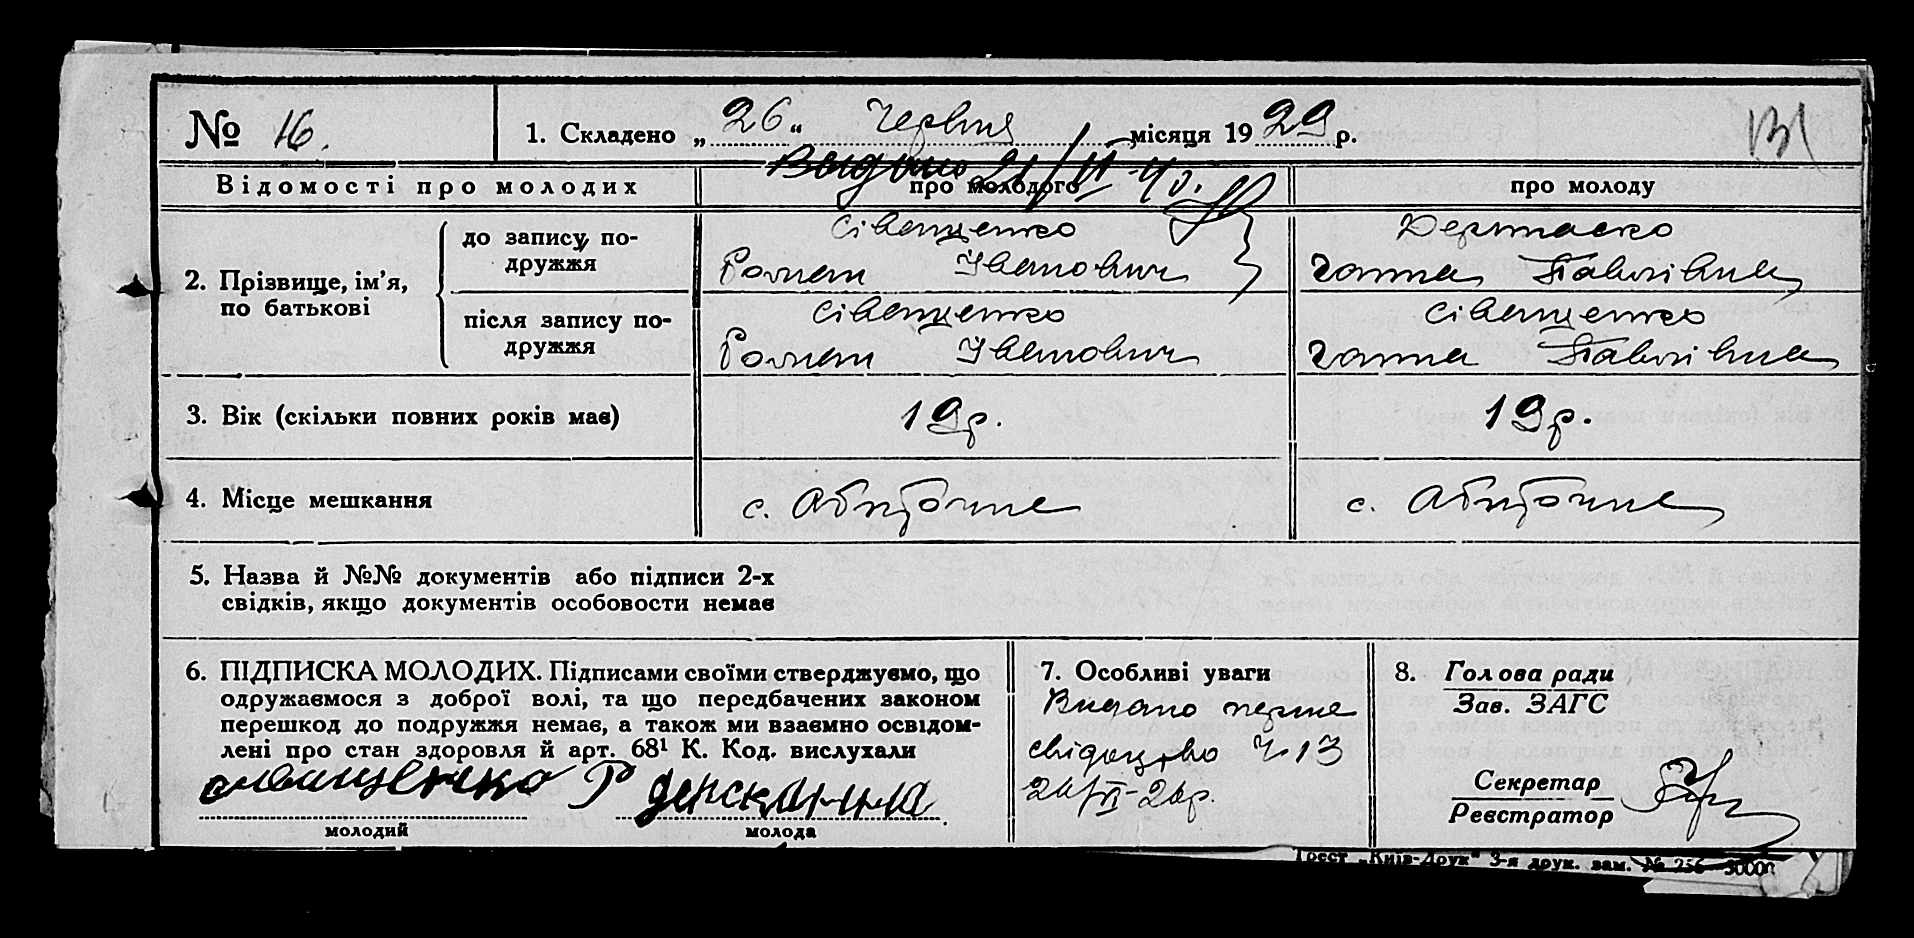 № 16.
1. Складено „26“ Червня місяця 1929 р.
131
Выдано 21/VI-40.
Відомості про молодих
про молодого
про молоду
2. Прізвище, ім’я,
по батькові
до запису по-
дружжя
Сіващенко
Роман Іванович
Ганна Павлівна
після запису по-
дружжя
Сіващенко
Роман Іванович
Сіващенко
Ганна Павлівна
3. Вік (скільки повних років має)
19 р.
19 р.
4. Місце мешкання
с.
с.
5. Назва й №№ документів або підписи 2-х
свідків, якщо документів особовости немає
6. ПІДПИСКА МОЛОДИХ. Підписами своїми стверджуємо, що
одружаємося з доброї волі, та що передбачених законом
перешкод до подружжя немає, а також ми взаємно освідом-
лені про стан здоровля й арт. 68¹ К. Код. вислухали
молодий
молода
7. Особливі уваги
Видано перше
свідоцтво Ч 13
26/VI-26р.
8. Голова ради
Зав. ЗАГС
Секретар
Реєстратор
Трест „Київ-Друк“ 3-я друк. зам. № 256—50000